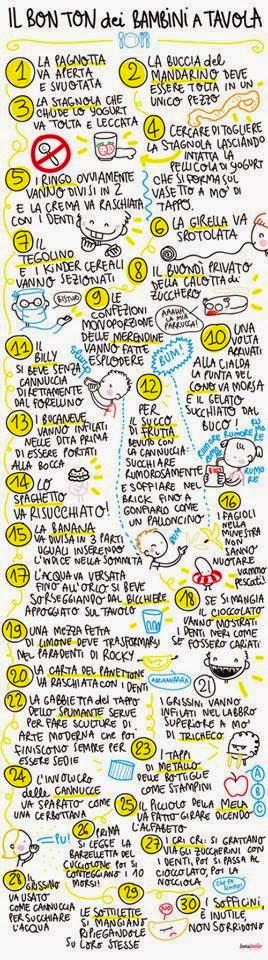 IL BON TON dei BAMBINI A TAVOLA
1 LA PAGNOTTA
VA APERTA
E SVUOTATA
2 LA BUCCIA del
MANDARINO DEVE
ESSERE TOLTA IN UN
UNICO PEZZO
3 LA STAGNOLA CHE
CHIUDE LO YOGURT
VA TOLTA E LECCATA
4 CERCARE DI TOGLIERE
LA STAGNOLA LASCIANDO
INTATTA LA
PELLICOLA DI YOGURT
CHE SI FORMA SUL
VASETTO A MO' DI
TAPPO.
5 I RINGO OVVIAMENTE
VANNO DIVISI IN 2
E LA CREMA VA RASCHIATA
CON I DENTI
6 LA GIRELLA VA
SROTOLATA
7 IL
TEGOLINO
E I KINDER CEREALI
VANNO SEZIONATI
BISTURI
8 IL BUONDÌ PRIVATO
DELLA CALOTTA DI
ZUCCHERO
AAAHH LA MIA PARRUCCA!
9 LE
CONFEZIONI
MONOPORZIONE
DELLE MERENDINE
VANNO FATTE
ESPLODERE
PUM!
10 UNA
VOLTA
ARRIVATI
ALLA CIALDA
LA PUNTA DEL
CONO VA MORSA
E IL GELATO
SUCCHIATO DAL
BUCO!
11 IL
BILLY
SI BEVE SENZA
CANNUCCIA
DIRETTAMENTE
DAL FORELLINO
SLURP
12
PER
IL SUCCO
DI FRUTTA
BEVUTO CON
LA CANNUCCIA:
SUCCHIARE
RUMOROSAMENTE
E SOFFIARE NEL
BRICK FINO A
GONFIARLO COME
UN PALLONCINO
RUMORE RUMORE RUMORE
13 I BUCANEVE
VANNO INFILATI
NELLE DITA PRIMA
DI ESSERE PORTATI
ALLA BOCCA
14 LO
SPAGHETTO
VA RISUCCHIATO!
15 LA BANANA
VA DIVISA IN 3 PARTI
UGUALI INSERENDO
L'INDICE NELLA SOMMITÀ
16
I FAGIOLI
NELLA
MINESTRA
NON
SANNO
NUOTARE
VANNO
PESCATI
17 L'ACQUA VERSATA
FINO ALL'ORLO SI BEVE
SORSEGGIANDO DAL BICCHIERE
APPOGGIATO SUL TAVOLO
18 SE SI MANGIA
IL CIOCCOLATO
VANNO MOSTRATI
I DENTI NERI COME
SE FOSSERO CARIATI
19 UNA MEZZA FETTA
DI LIMONE DEVE TRASFORMARSI
NEL PARADENTI DI ROCKY
20 LA CARTA DEL PANETTONE
VA RASCHIATA CON I DENTI
21
I GRISSINI VANNO
INFILATI NEL LABBRO
SUPERIORE A MO'
DI TRICHECO
22 LA GABBIETTA del TAPPO
DELLO SPUMANTE SERVE
PER FARE SCULTURE DI
ARTE MODERNA CHE POI
FINISCONO SEMPRE PER
ESSERE SEDIE
23
I TAPPI
DI METALLO
DELLE BOTTIGLIE
COME STAMPINI
24 L'INVOLUCRO
DELLE CANNUCCE
VA SPARATO COME
UNA CERBOTTANA
PU!
25 IL PICCIOLO DELLA MELA
VA FATTO GIRARE DICENDO
L'ALFABETO
A B C
26 PRIMA
SI LEGGE LA
BARZELLETTA DEL
CUCCIOLONE POI SI
CONTEGGIANO I
10 MORSI!
27 I CRI CRI: SI GRATTANO
VIA GLI ZUCCHERINI CON
I DENTI, POI SI PASSA AL
CIOCCOLATO, POI LA
NOCCIOLA
28 IL
GRISSINO
VA USATO
COME CANNUCCIA
PER SUCCHIARE
L'ACQUA
29
LE SOTTILETTE
SI MANGIANO
RIPIEGANDOLE
SU LORO STESSE
30 I SOFFICINI,
È INUTILE,
NON SORRIDONO